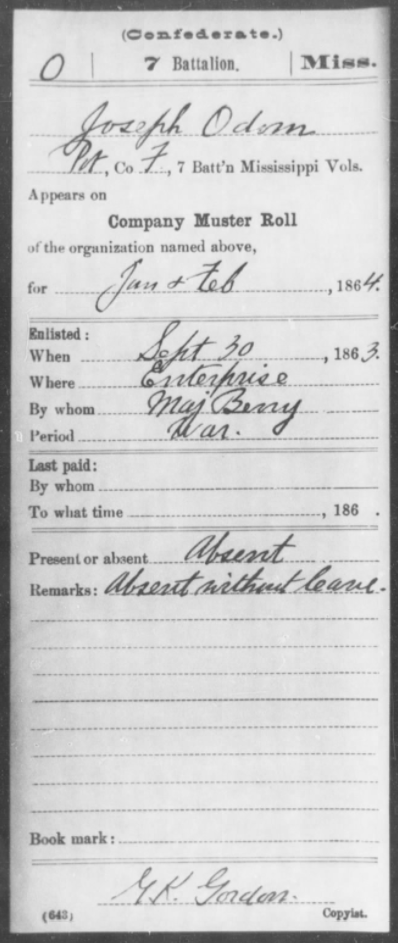 (Confederate.)
O | 7 Battalion. | Miss.
Joseph Odom
Pvt, Co F, 7 Batt'n Mississippi Vols.
Appears on
Company Muster Roll
of the organization named above,
for Jan & Feb, 1864.
Enlisted:
When Sept 30, 1863.
Where Enterprise
By whom Maj Berry
Period War.
Last paid:
By whom
To what time , 186 .
Present or absent Absent
Remarks: Absent without leave.
Book mark:
G.K. Gordon.
(643) Copyist.